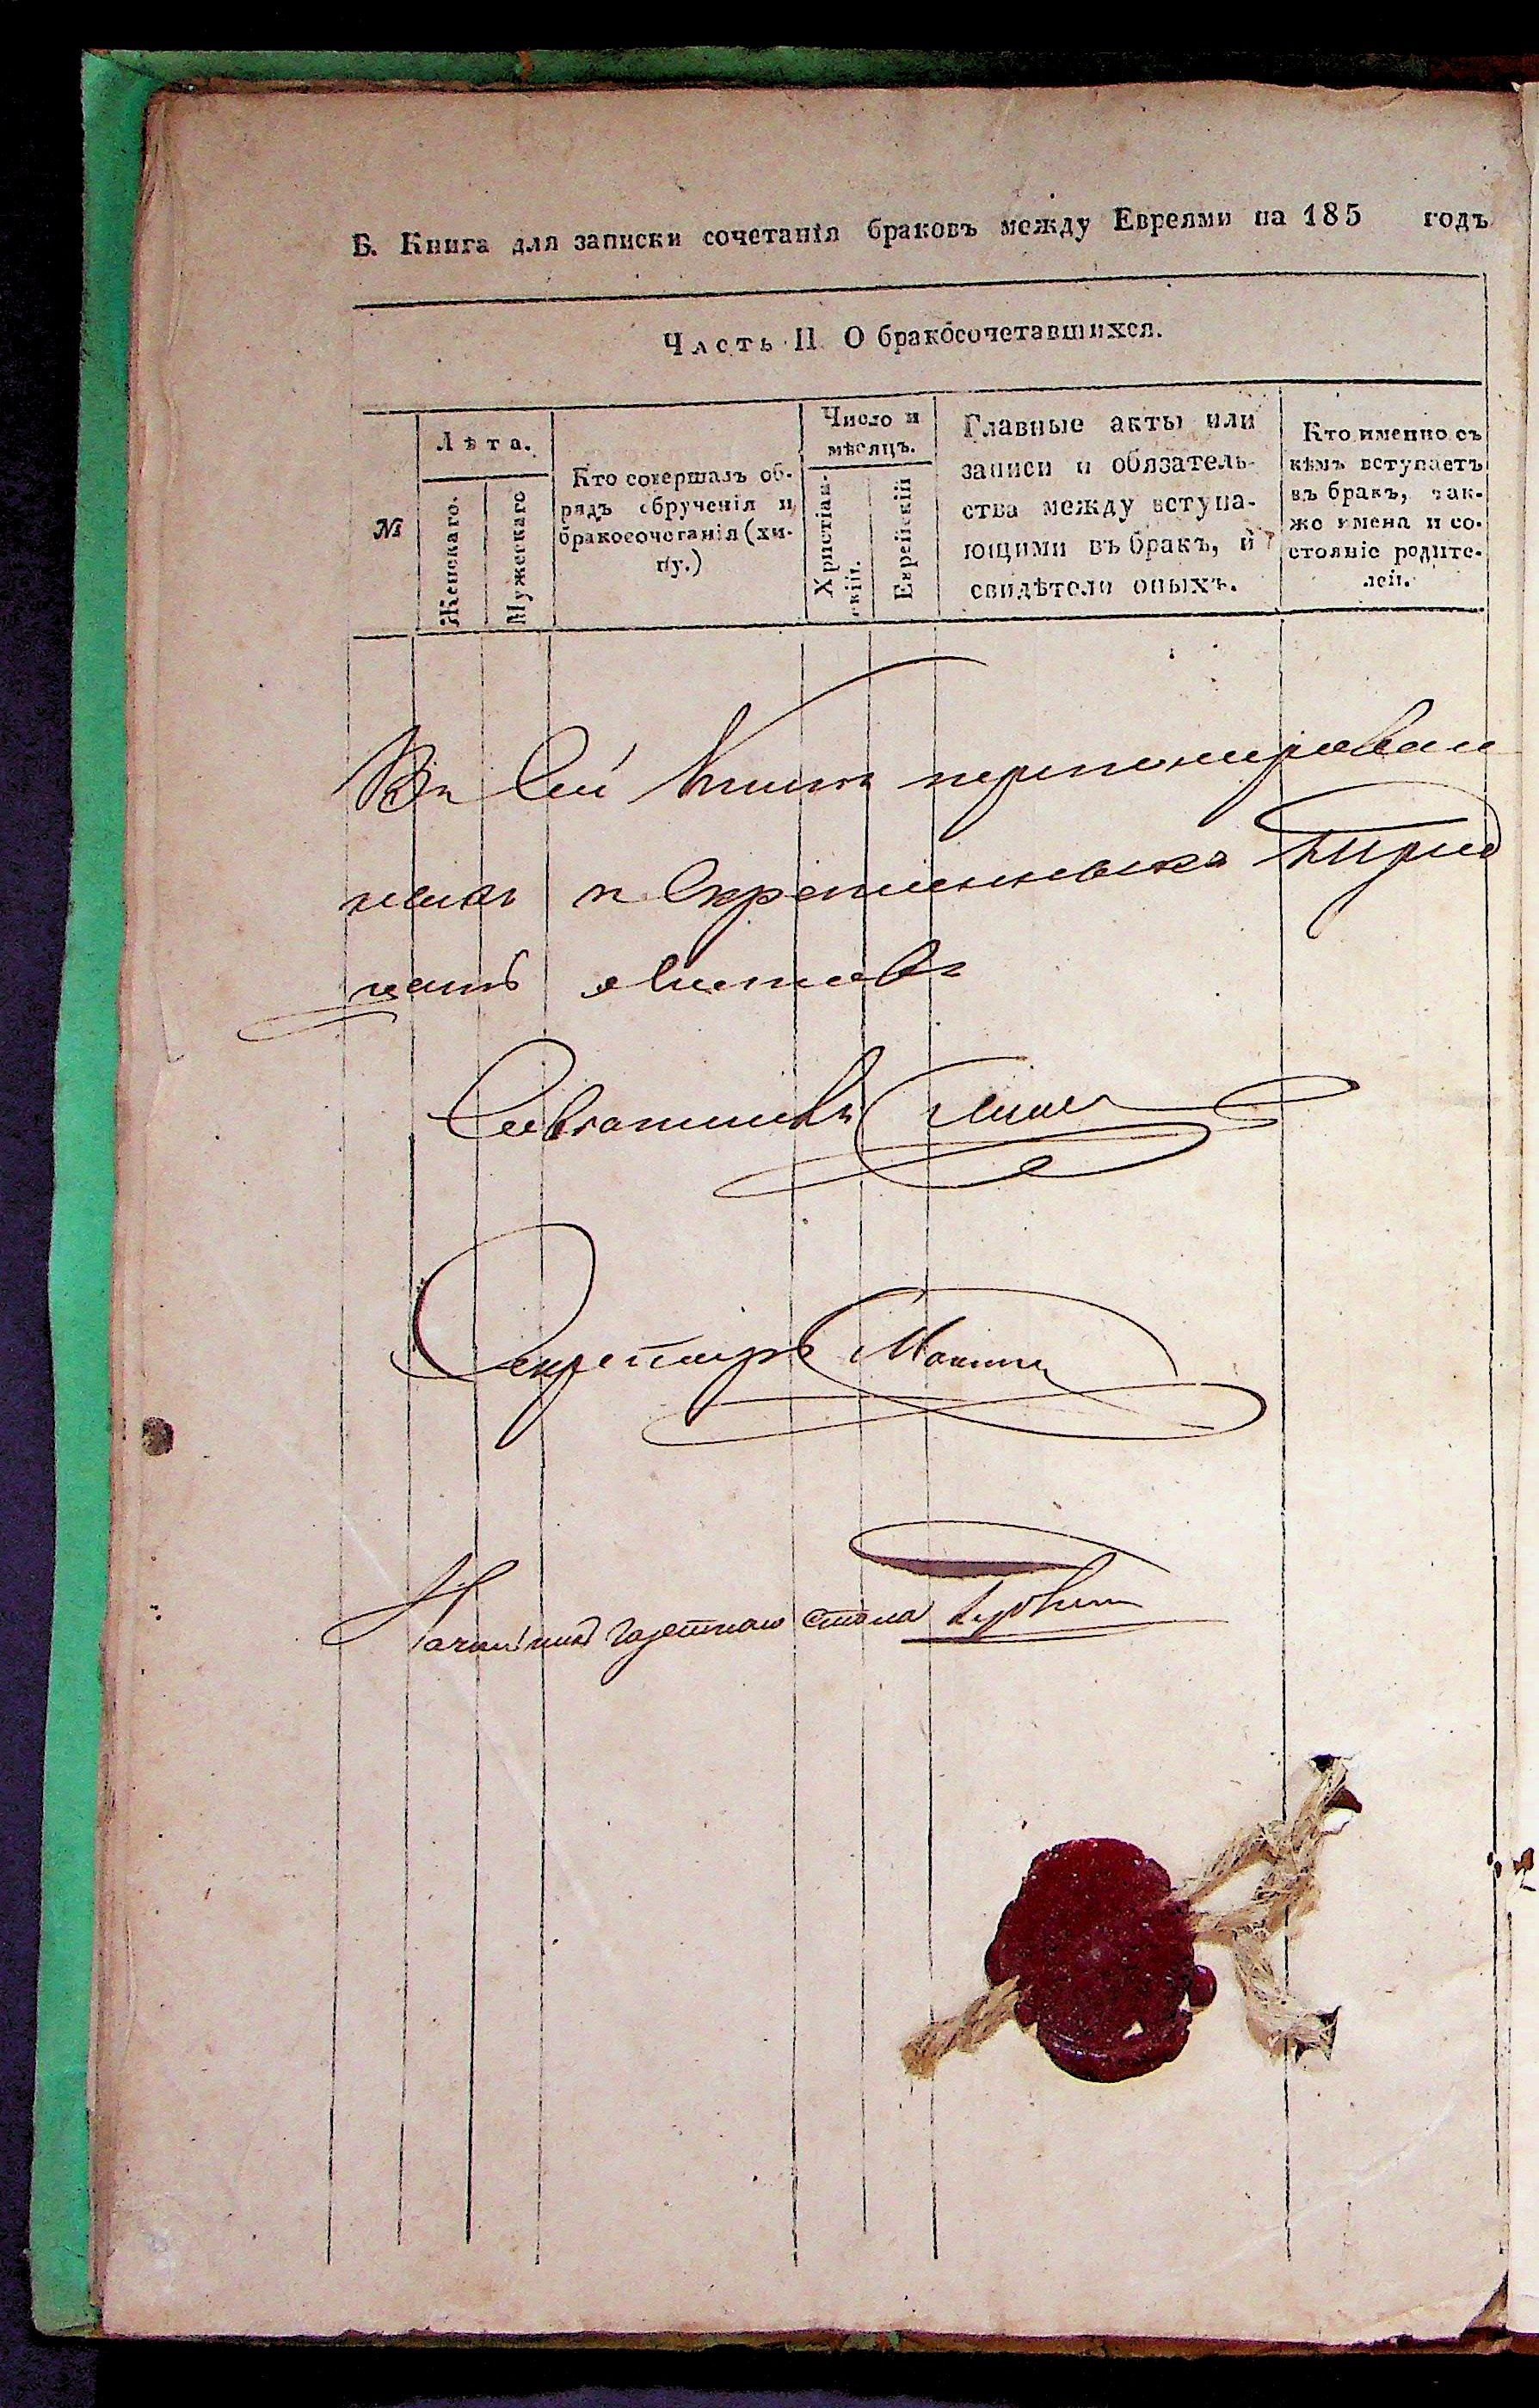 Б. Книга для записки сочетанія браковъ между Евреями на 185 годъ
Часть II. О бракосочетавшихся.
№
Лѣта.
Женскаго.
Мужескаго
Кто совершалъ об-
рядъ обрученія и
бракосочетанія (хи-
пу.)
Число и
мѣсяцъ.
Христіан-
скій.
Еврейскій
Главные акты или
записи и обязатель-
ства между вступа-
ющими въ бракъ, и
свидѣтели оныхъ.
Кто именно съ
кѣмъ вступаетъ
въ бракъ, так-
же имена и со-
стояніе родите-
лей.
Въ Сей Книгѣ
листовъ
Совѣтникъ
Секретарь
Начальникъ Газетнаго Стола